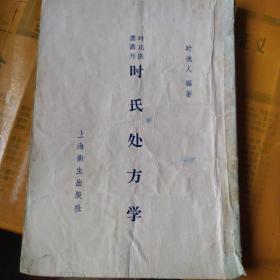 时逸人 编著
时氏医
书丛刊
时氏处方学
上海衞生出版社